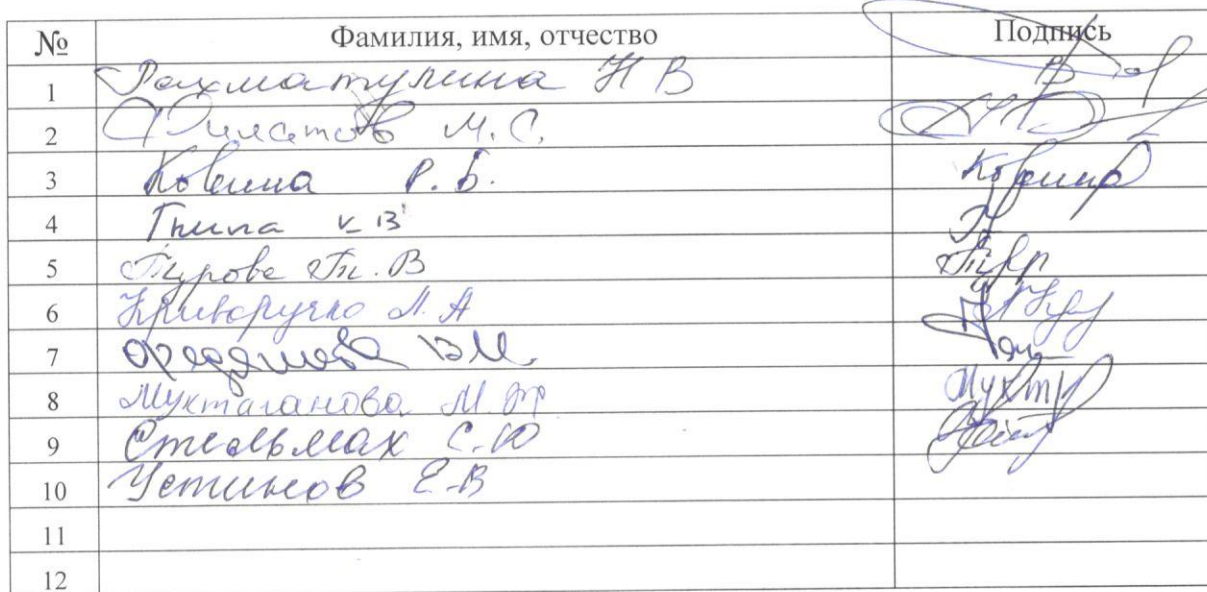 № Фамилия, имя, отчество Подпись
1 Рахматулина Н В
2 Филатов М. С.
3 Ковина Р. Б.
4 Гнипа В
5 Турова Т. В
6 Криворучко Л. А
7 В М.
8 Муктаганова М.
9 Стельмах С. Ю
10 Устинов Е. В
11
12